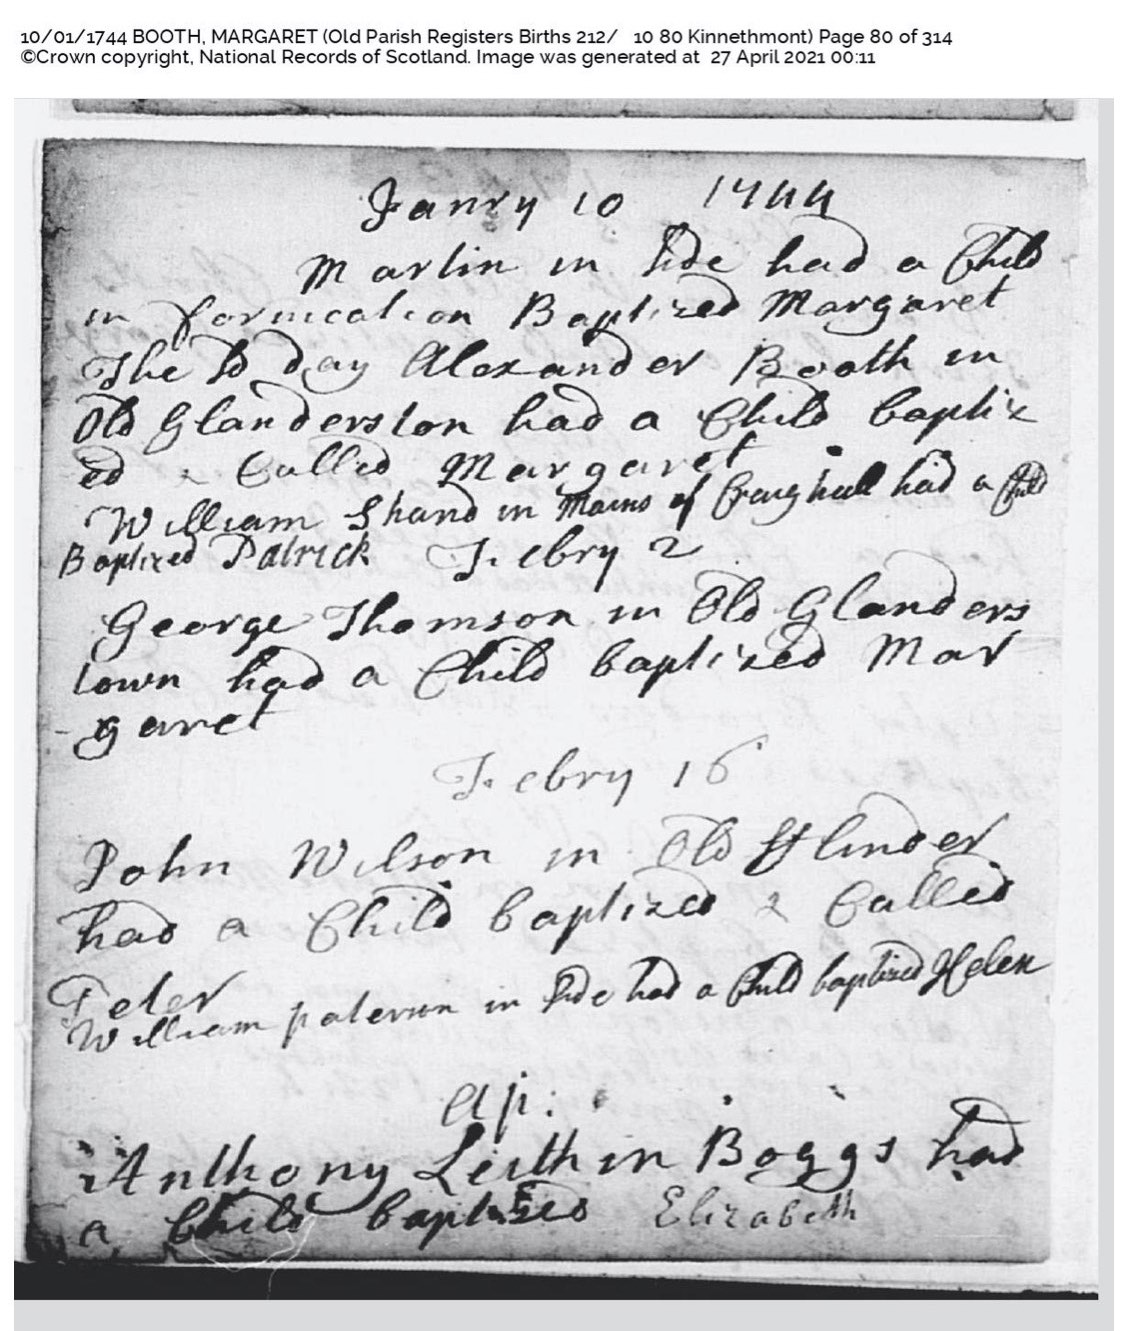 10/01/1744 BOOTH, MARGARET (Old Parish Registers Births 212/ 10 80 Kinnethmont) Page 80 of 314
©Crown copyright, National Records of Scotland. Image was generated at 27 April 2021 00:11
Janry 10 1744
Martin in had a Child
in fornication Baptized Margaret
The day Alexander Booth in
Old Glanderston had a Child baptiz
ed & Called Margaret
William Shand in Mains of Craighall had a Child
Baptized Patrick Febry 2
George Thomson in Old Glanders
town had a Child baptized Mar
garet
Febry 16
John Wilson in Old fflinder
had a Child baptized & Called
Peter
William paterson in had a Child baptized Helen
Ap:
Anthony Leith in Boggs had
a Child baptized Elizabeth